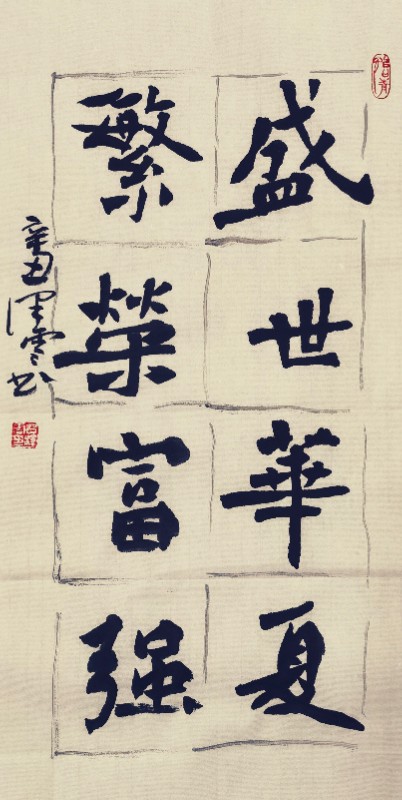 盛世華夏
繁榮富强
辛丑澤雲书